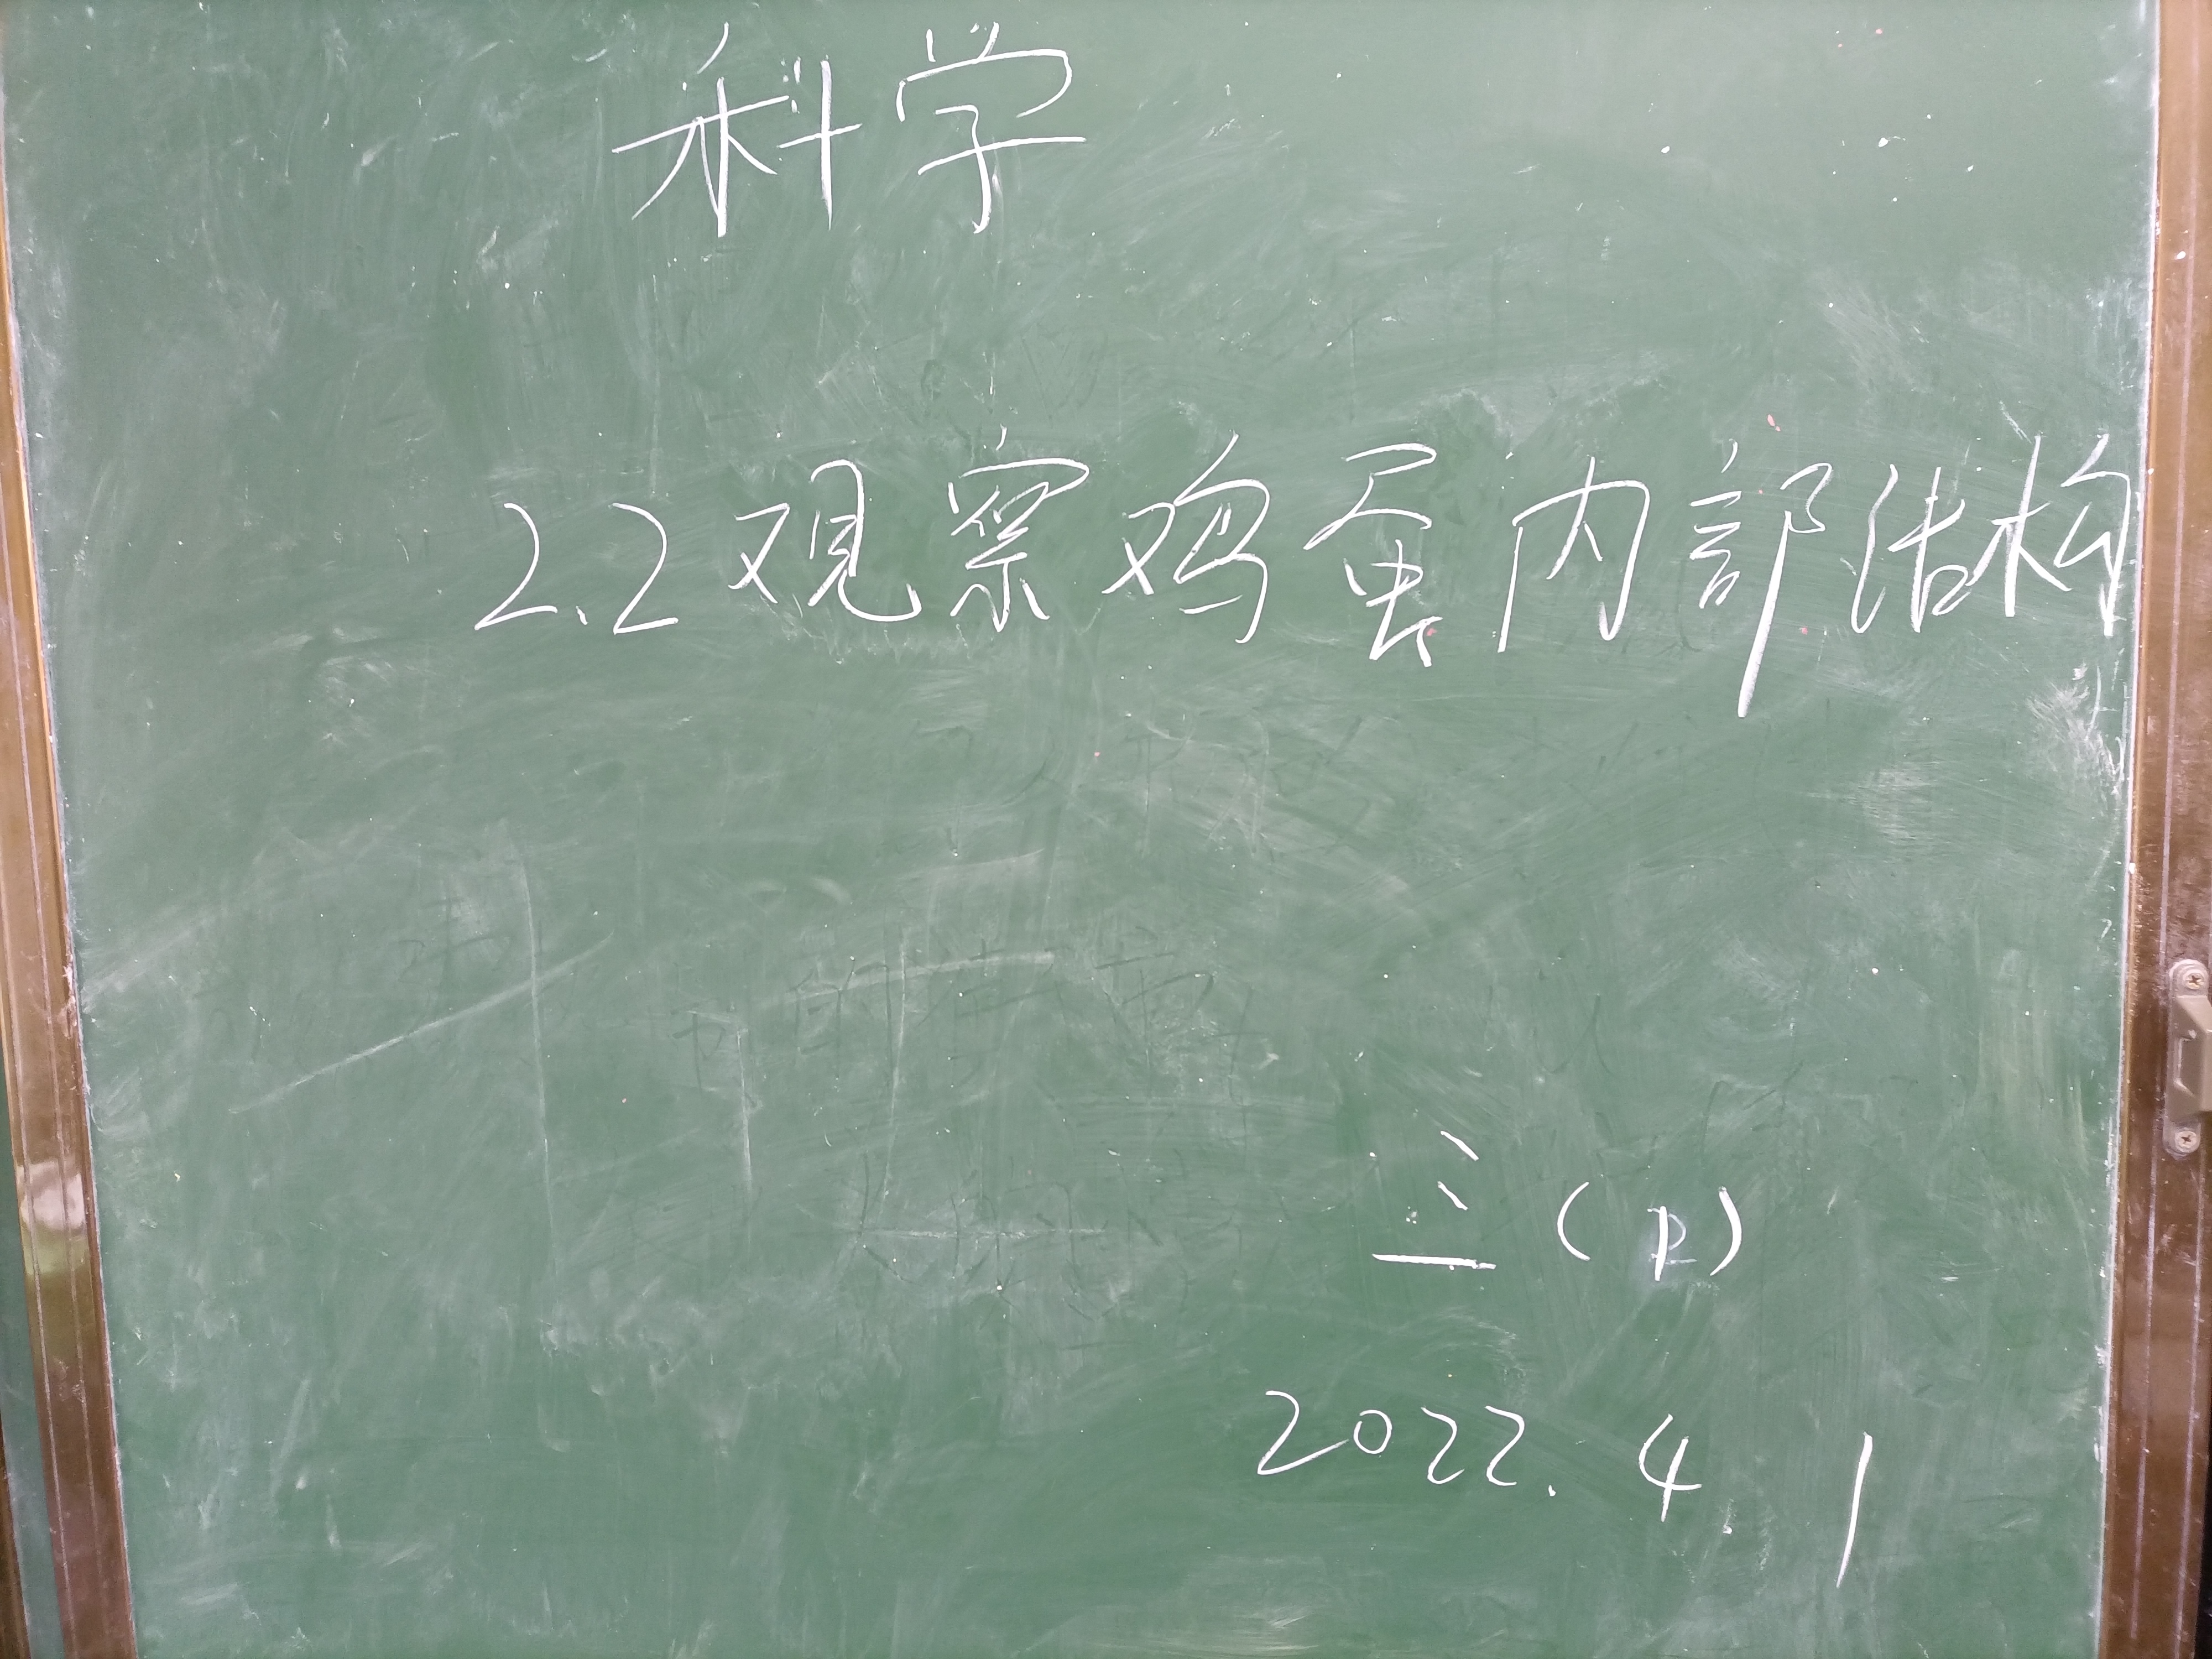 科学
2.2观察鸡蛋内部结构
三(12)
2022.4.1